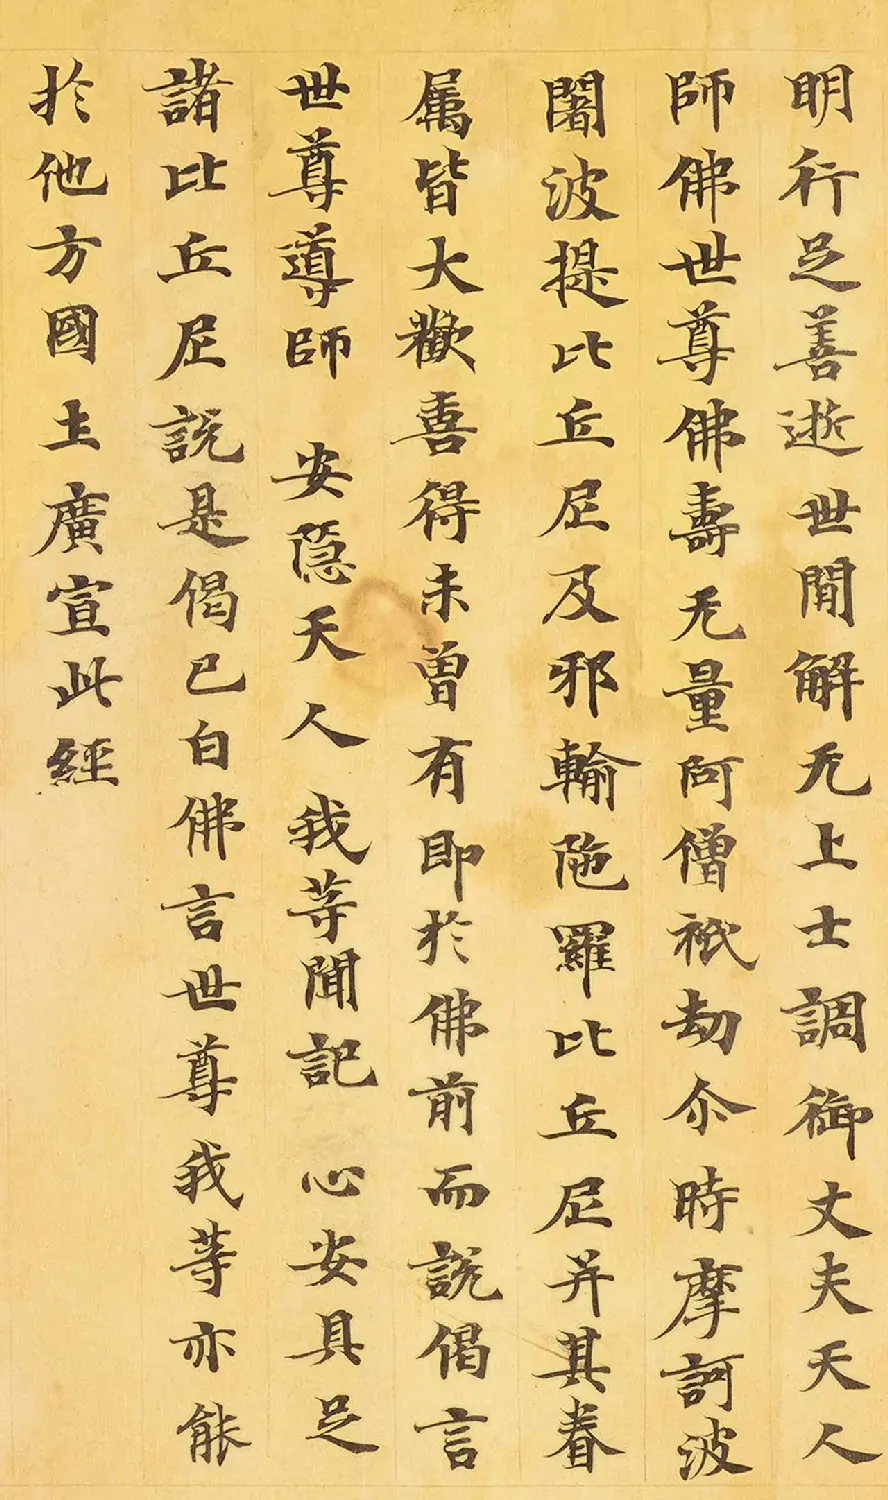 明行足善逝世間解无上士調御丈夫天人
師佛世尊佛壽无量阿僧祇劫尒時摩訶波
闍波提比丘尼及耶輸陁羅比丘尼并其眷
属皆大歡喜得未曾有即於佛前而說偈言
世尊導師 安隱天人 我等聞記 心安具足
諸比丘尼說是偈已白佛言世尊我等亦能
於他方國土廣宣此經